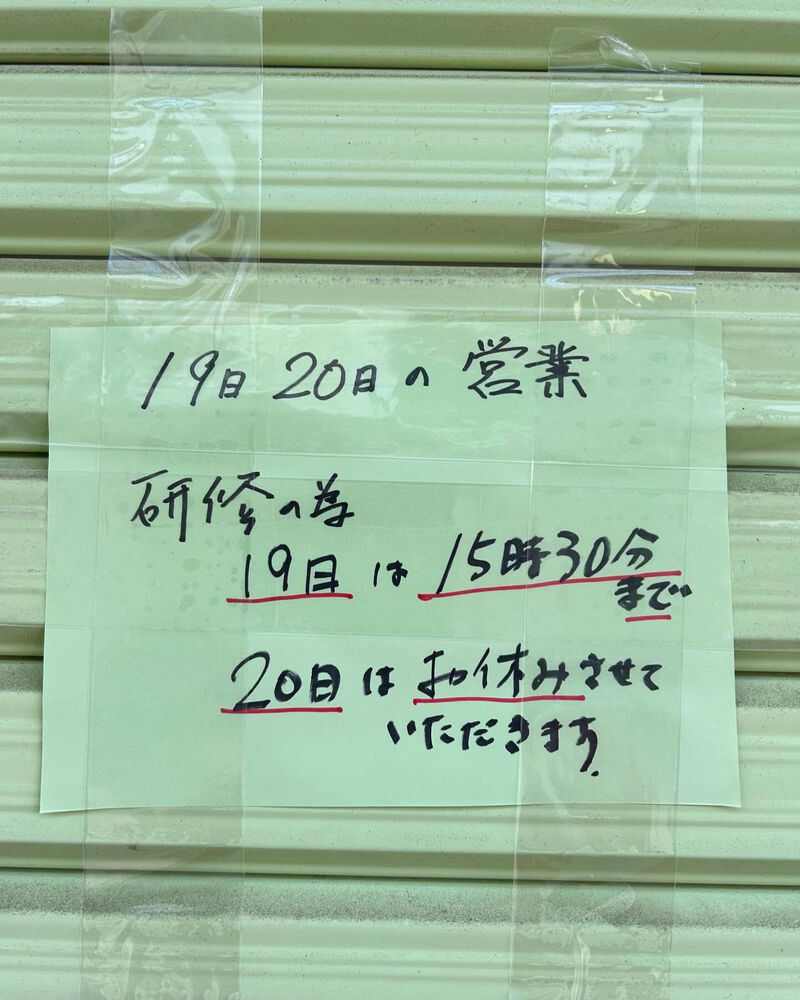 19日 20日の 営業
研修の為
19日 は 15時30分
まで
20日 は お休みさせて
いただきます.